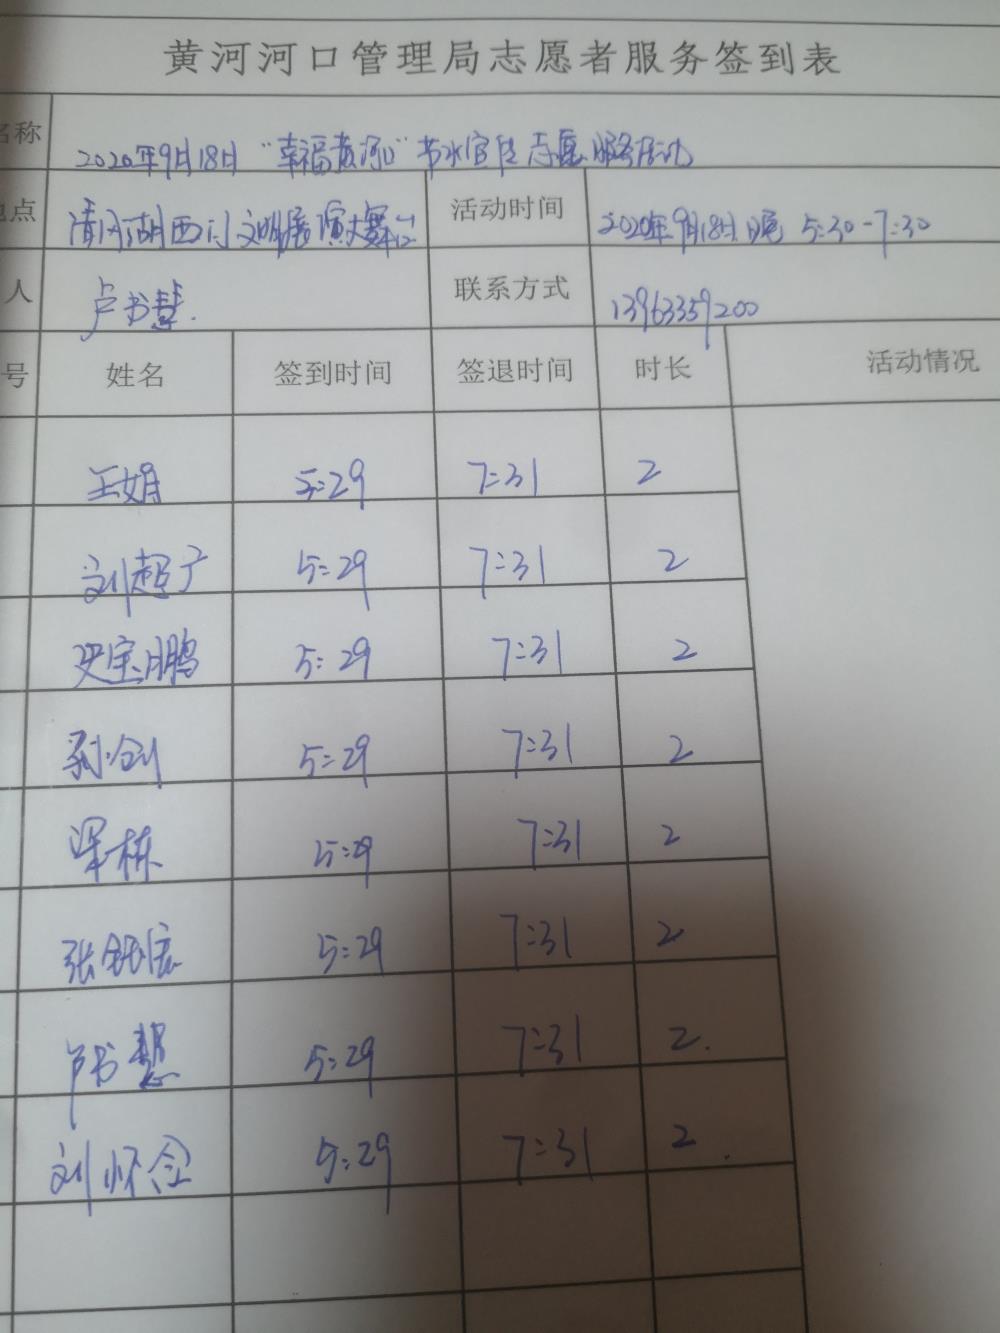 黄河河口管理局志愿者服务签到表
名称 2020年9月18日"幸福黄河"节水宣传志愿服务活动
地点 清风湖西门文明展演大舞台 活动时间 2020年9月18日晚 5:30-7:30
人 卢书慧 联系方式 13963359200
号 姓名 签到时间 签退时间 时长 活动情况
王娟 5:29 7:31 2
刘超广 5:29 7:31 2
宝鹏 5:29 7:31 2
5:29 7:31 2
梁栋 5:29 7:31 2
张 5:29 7:31 2
卢书慧 5:29 7:31 2.
刘怀念 5:29 7:31 2